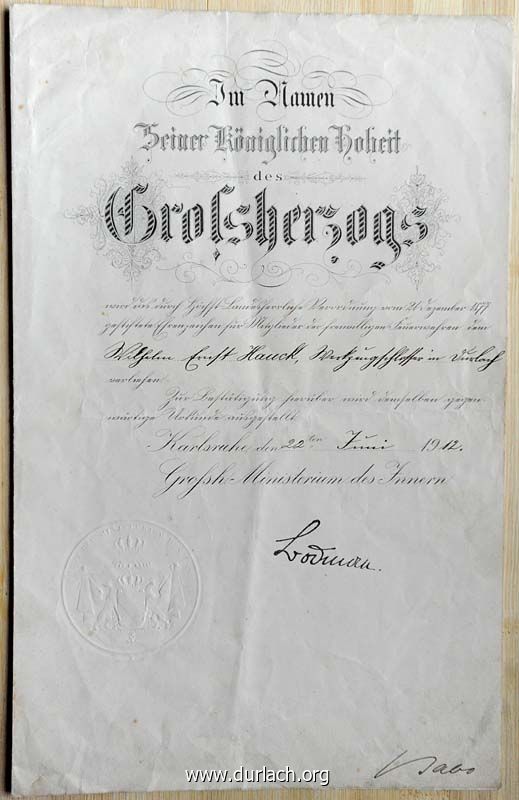 Im Namen
Seiner Königlichen Hoheit
des
Großherzogs
wird das durch Höchst Landesherrliche Verordnung vom 21 Dezember 1877
gestiftete Ehrenzeichen für Mitglieder der freiwilligen Feuerwehren dem
Wilhelm Ernst Hauck, Werkzeugschlosser in Durlach
verliehen.
Zur Bestätigung hierüber wird demselben gegen-
wärtige Urkunde ausgestellt
Karlsruhe den 22ten Juni 1912.
Großh. Ministerium des Innern
Bodman.
www.durlach.org